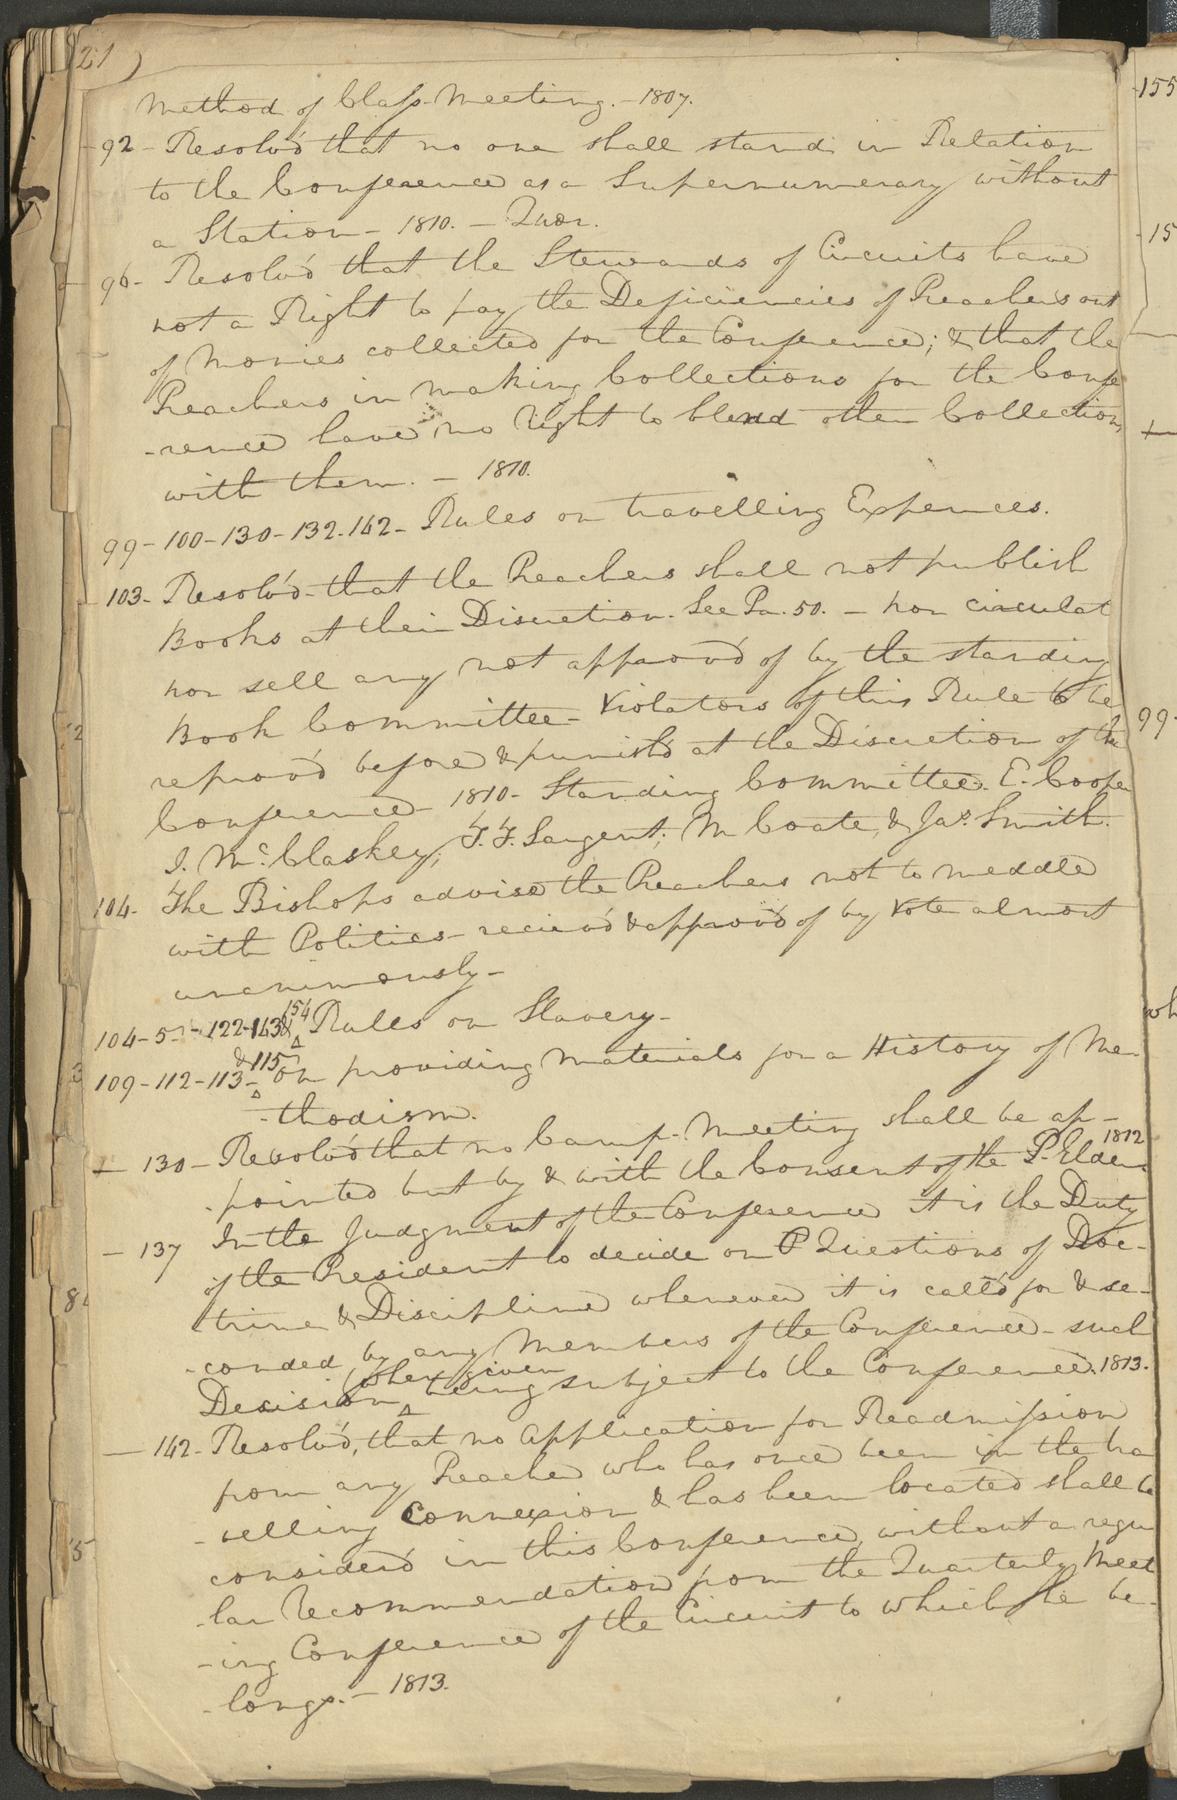 21)
Method of Class-Meeting. - 1807.
92 - Resolv'd that no one shall stand in Relation
to the Conference as a Supernumerary without
a Station - 1810. - Quor.
96 - Resolv'd that the Stewards of Circuits have
not a Right to pay the Deficiencies of Preachers out
of Monies collected for the Conference; & that the
Preachers in making Collections for the Confe
-rence have no Right to blend other Collections
with them. - 1810.
99 - 100 - 130 - 132 - 142 - Rules on travelling Expences.
103 - Resolv'd that the Preachers shall not publish
Books at their Discretion. See Pa. 50. - nor circulat
nor sell any not approv'd of by the standing
Book Committee - Violators of this Rule to be
reprov'd before & punish'd at the Discretion of the
Conference - 1810 - Standing Committee. E. Cooper
J. McClaskey; T. F. Sargent; M Coate, & Jas. Smith.
104 - The Bishops advise the Preachers not to meddle
with Politics - reciev'd & approv'd of by Vote almost
unanimously -
104 - 5 - 122 - 143 & 154 Rules on Slavery -
109 - 112 - 113 - & 115 On providing Materials for a History of Me-
-thodism.
- 130 - Resolv'd that no Camp-Meeting shall be ap-
-pointed but by & with the Consent of the P. Elders 1812
- 137 In the Judgment of the Conference it is the Duty
of the President to decide on Questions of Doc-
trine & Discipline whenever it is call'd for & se-
-conded by any Members of the Conference - such
Decision when given being subject to the Conference. 1813.
- 142 - Resolv'd, that no Application for Readmission
from any Preacher who has once been in the tra
-velling Connexion & has been located shall be
consider'd in this Conference, without a regu
-lar Recommendation from the Quarterly Meet
-ing Conference of the Circuit to which he be-
-longs. - 1813.
155
15
99-
wh